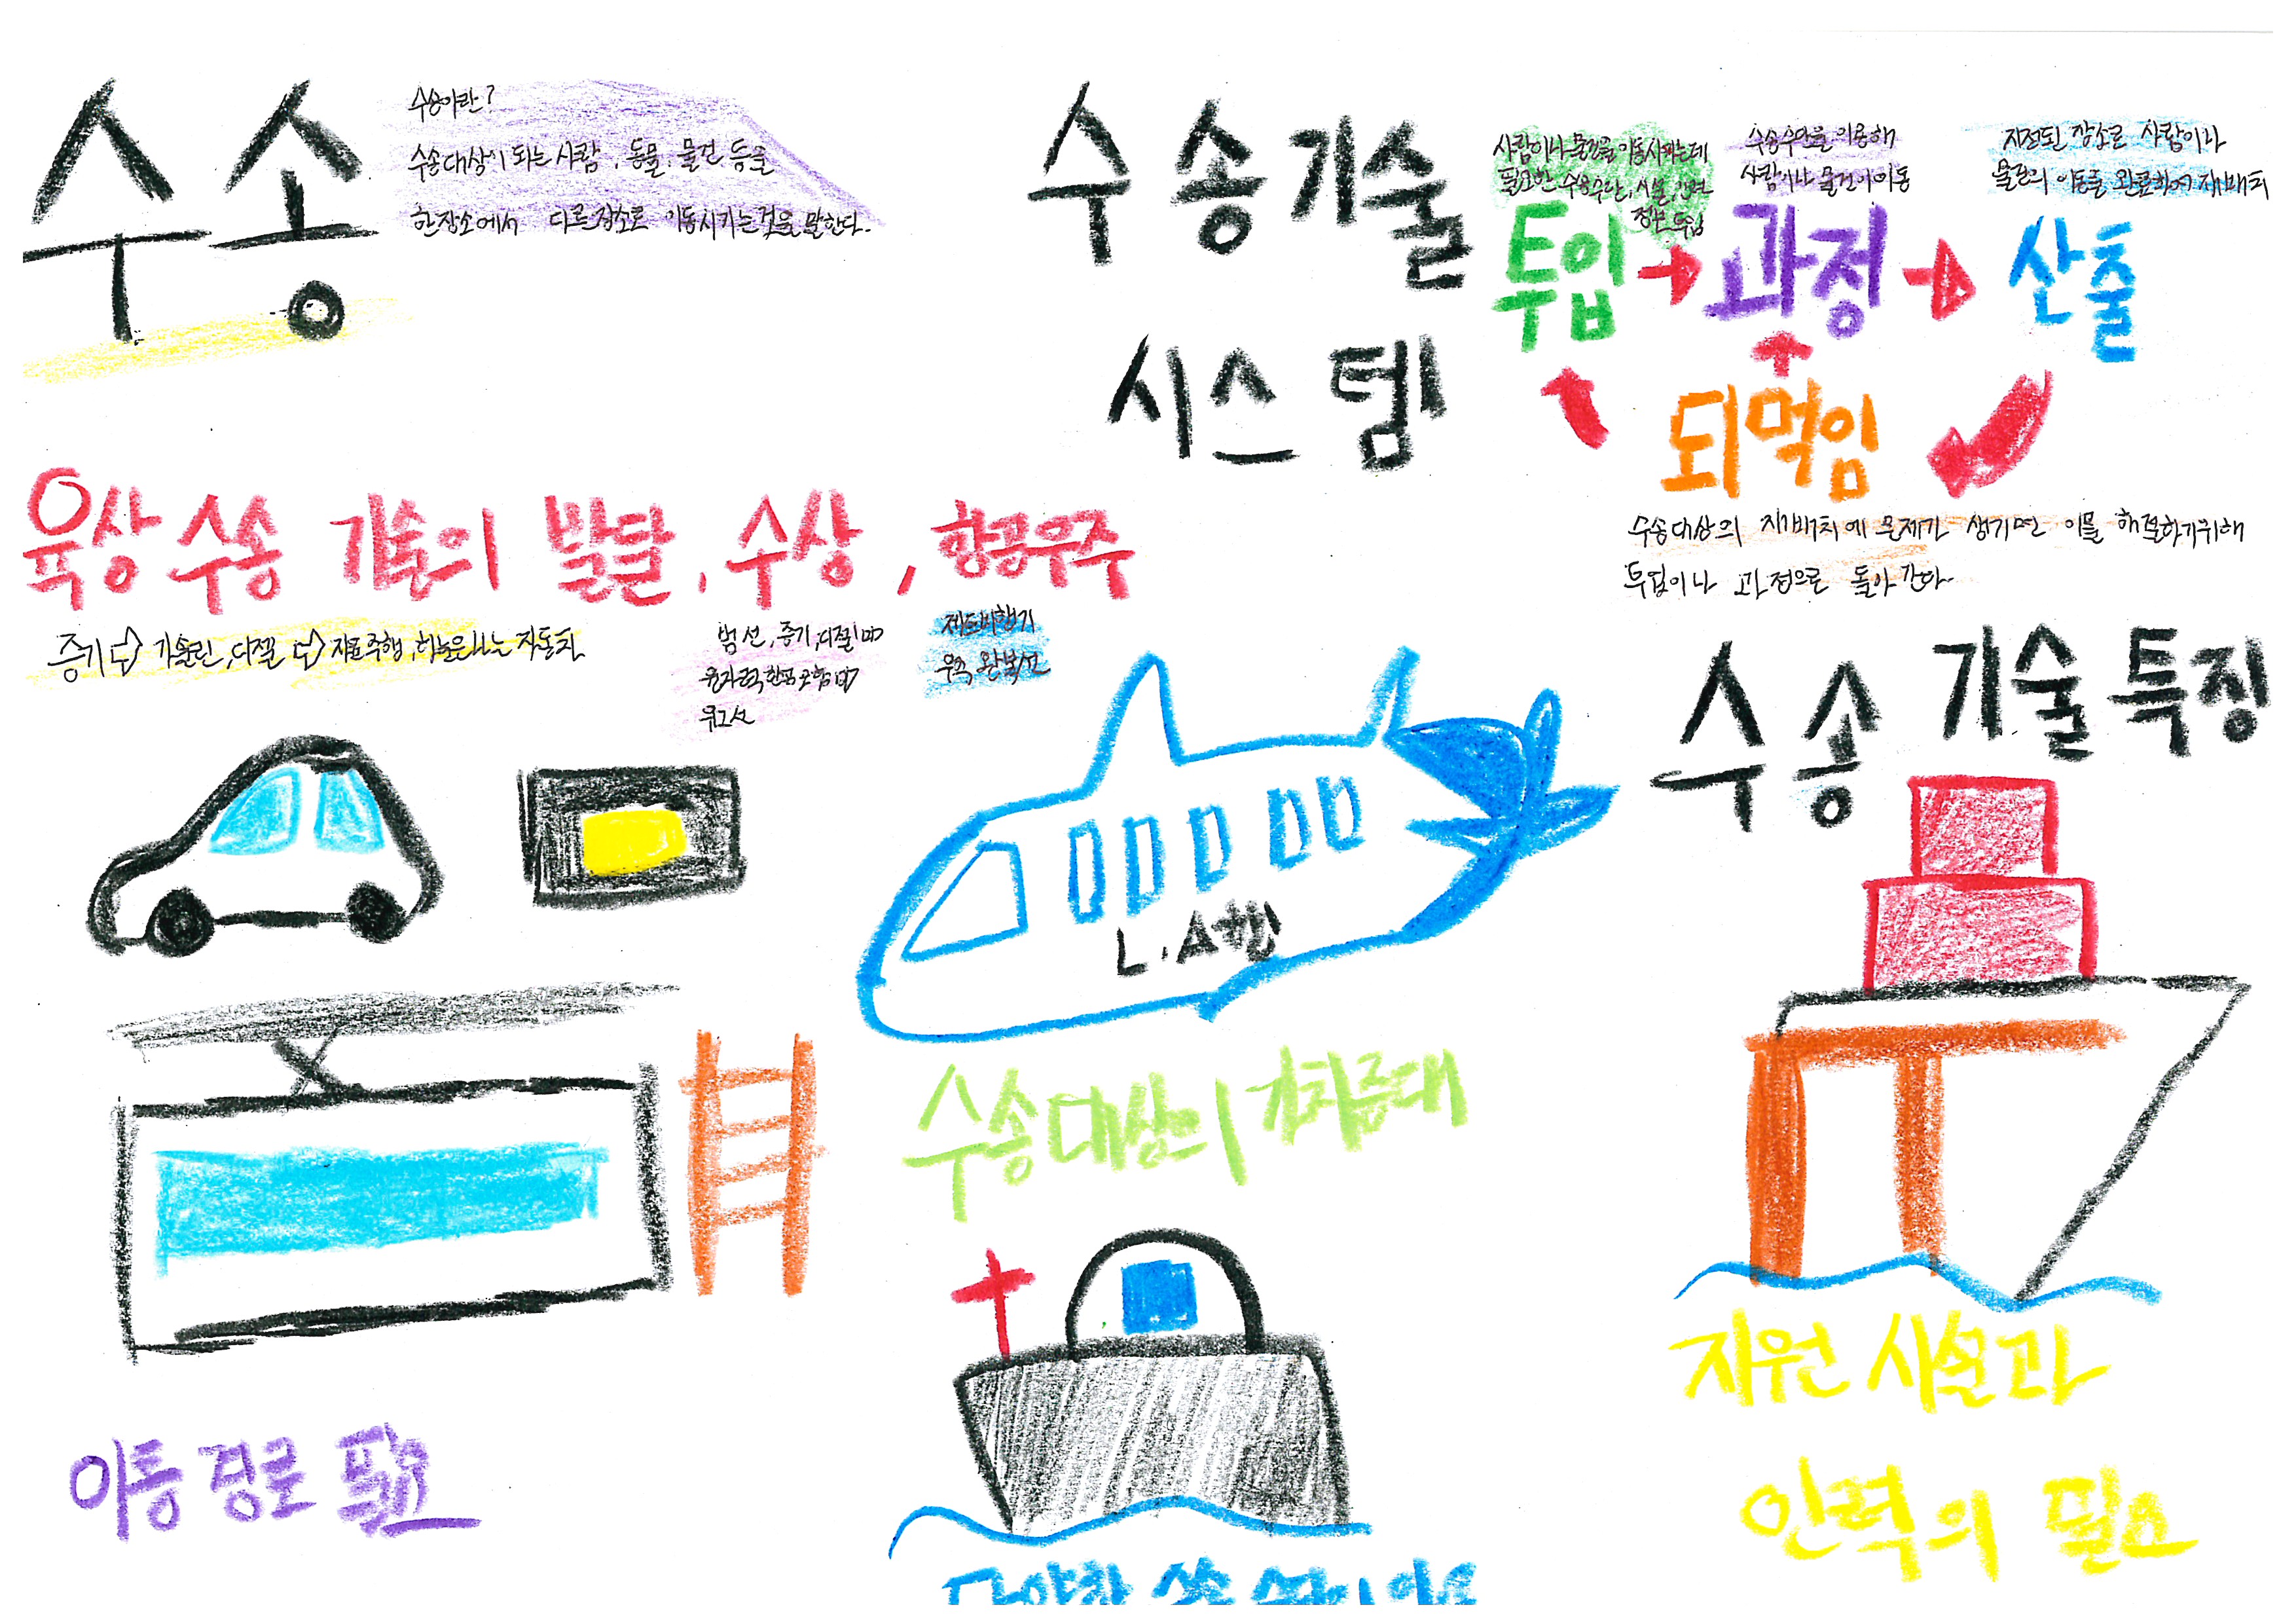 수송
수송이란?
수송대상이 되는 사람, 동물, 물건 등을
한장소에서 다른장소로 이동시키는것을 말한다.
수송기술
시스템
사람이나 물건을 이동시키는데
필요한 수송수단, 시설, 인력
정보 투입
투입
수송수단을 이용해
사람이나 물건이 이동
과정
지정된 장소로 사람이나
물건의 이동을 완료하여 재배치
산출
되먹임
수송대상의 재배치에 문제가 생기면 이를 해결하기위해
투입이나 과정으로 돌아간다.
육상 수송 기술의 발달, 수상, 항공우주
증기 ⇨ 가솔린, 디젤 ⇨ 자율주행, 하늘을 나는 자동차
범선, 증기, 디젤
위그선
제트비행기
우주 왕복선
수송 기술 특징
L.A행
수송대상의 가치증대
이동 경로 필요
지원 시설과
인력의 필요
다양한 수송 수단의 이용